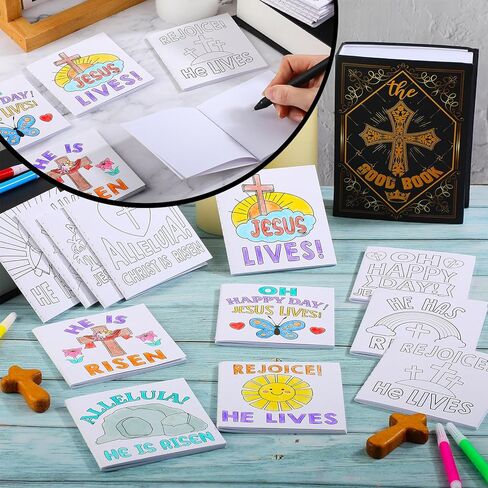 REJOICE!
HE LIVES
JESUS
LIVES!
HE IS
RISEN
the
ROOT BOOK
ALLELUIA!
CHRIST IS RISEN
HE
JESUS
LIVES!
OH
HAPPY DAY!
JESUS LIVES!
HE IS
RISEN
OH
HAPPY
DAY!!
HE HAS
REJOICE!
HE LIVES
REJOICE!
HE LIVES
ALLELUIA!
HE IS RISEN